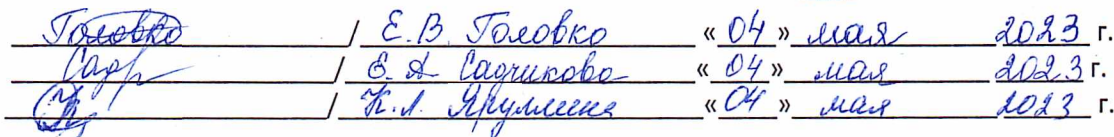 Головко / Е.В. Головко « 04 » мая 2023 г.
Садр / Е.А. Садчикова « 04 » мая 2023 г.
/ К.Л. Яруллина « 04 » мая 2023 г.